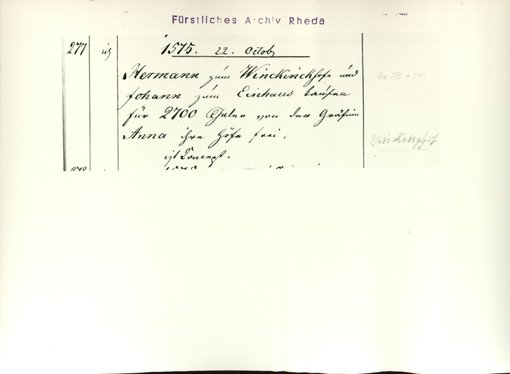 Fürstliches Archiv Rheda
277
1575. 22. Octob
Hermann zum Winckinckhofe und
Johann zum Einhaus kaufen
für 2700 Thaler von der Gräfinn
Anna ihre Höfe frei.
ist Concept.
278